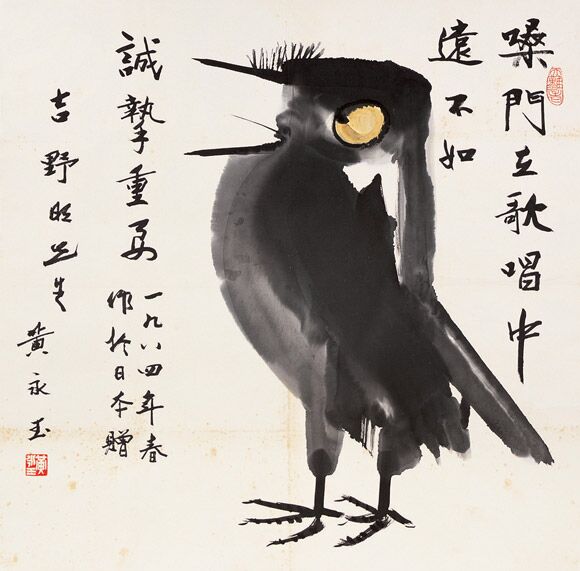 嗓門在歌唱中
遠不如
誠摯重要
一九八四年春
作於日本贈
吉野先生
黃永玉